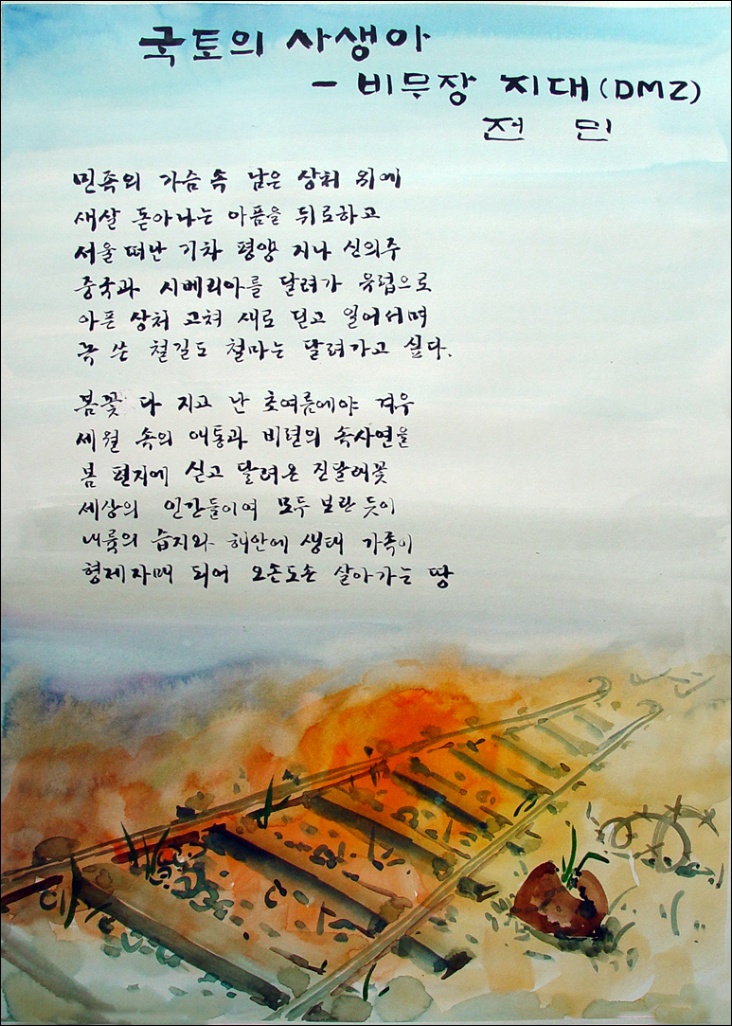 국토의 사생아
- 비무장 지대(DMZ)
전 민
민족의 가슴 속 남은 상처 위에
새살 돋아나는 아픔을 뒤로하고
서울 떠난 기차 평양 지나 신의주
중국과 시베리아를 달려가 유럽으로
아픈 상처 고쳐 새로 딛고 일어서며
녹 쓴 철길도 철마는 달려가고 싶다.
봄꽃 다 지고 난 초여름에야 겨우
세월 속의 애통과 비련의 속사연을
봄 편지에 싣고 달려온 진달래꽃
세상의 인간들이여 모두 보란 듯이
내륙의 습지와 해안에 생태 가족이
형제자매 되어 오손도손 살아가는 땅